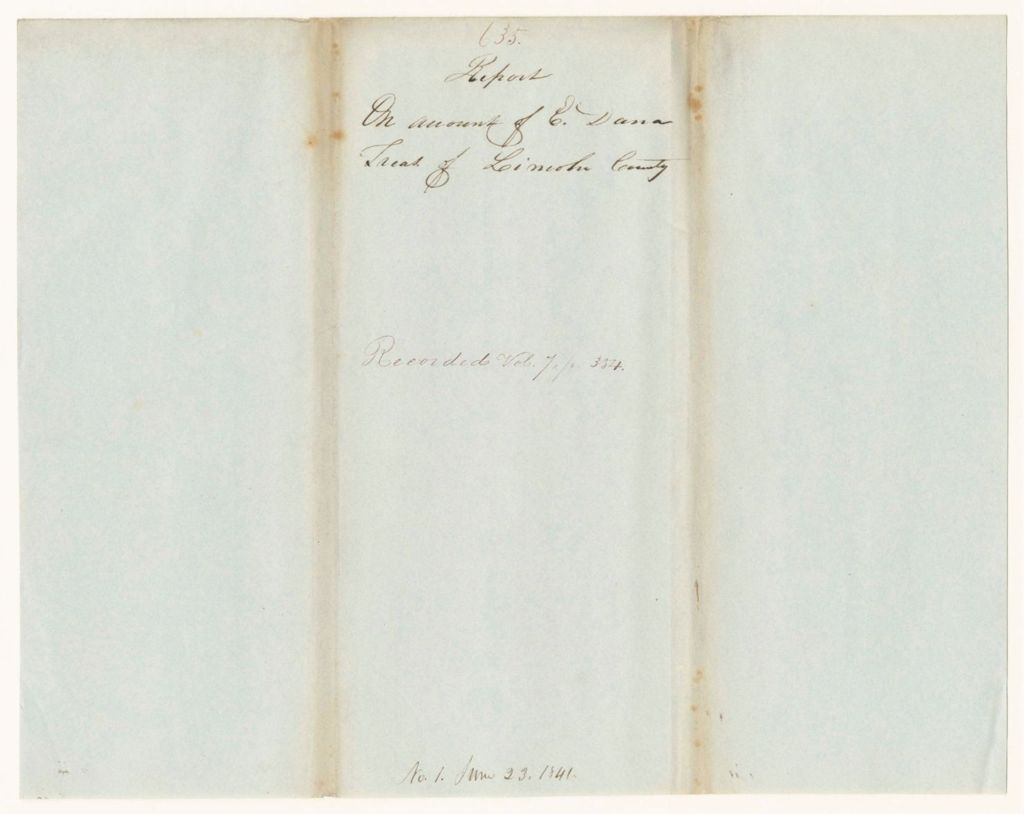 (35.
Report
On account of E. Dana
Treas of Lincoln County
Recorded Vol. 7. p. 334.
No. 1. June 23. 1841.